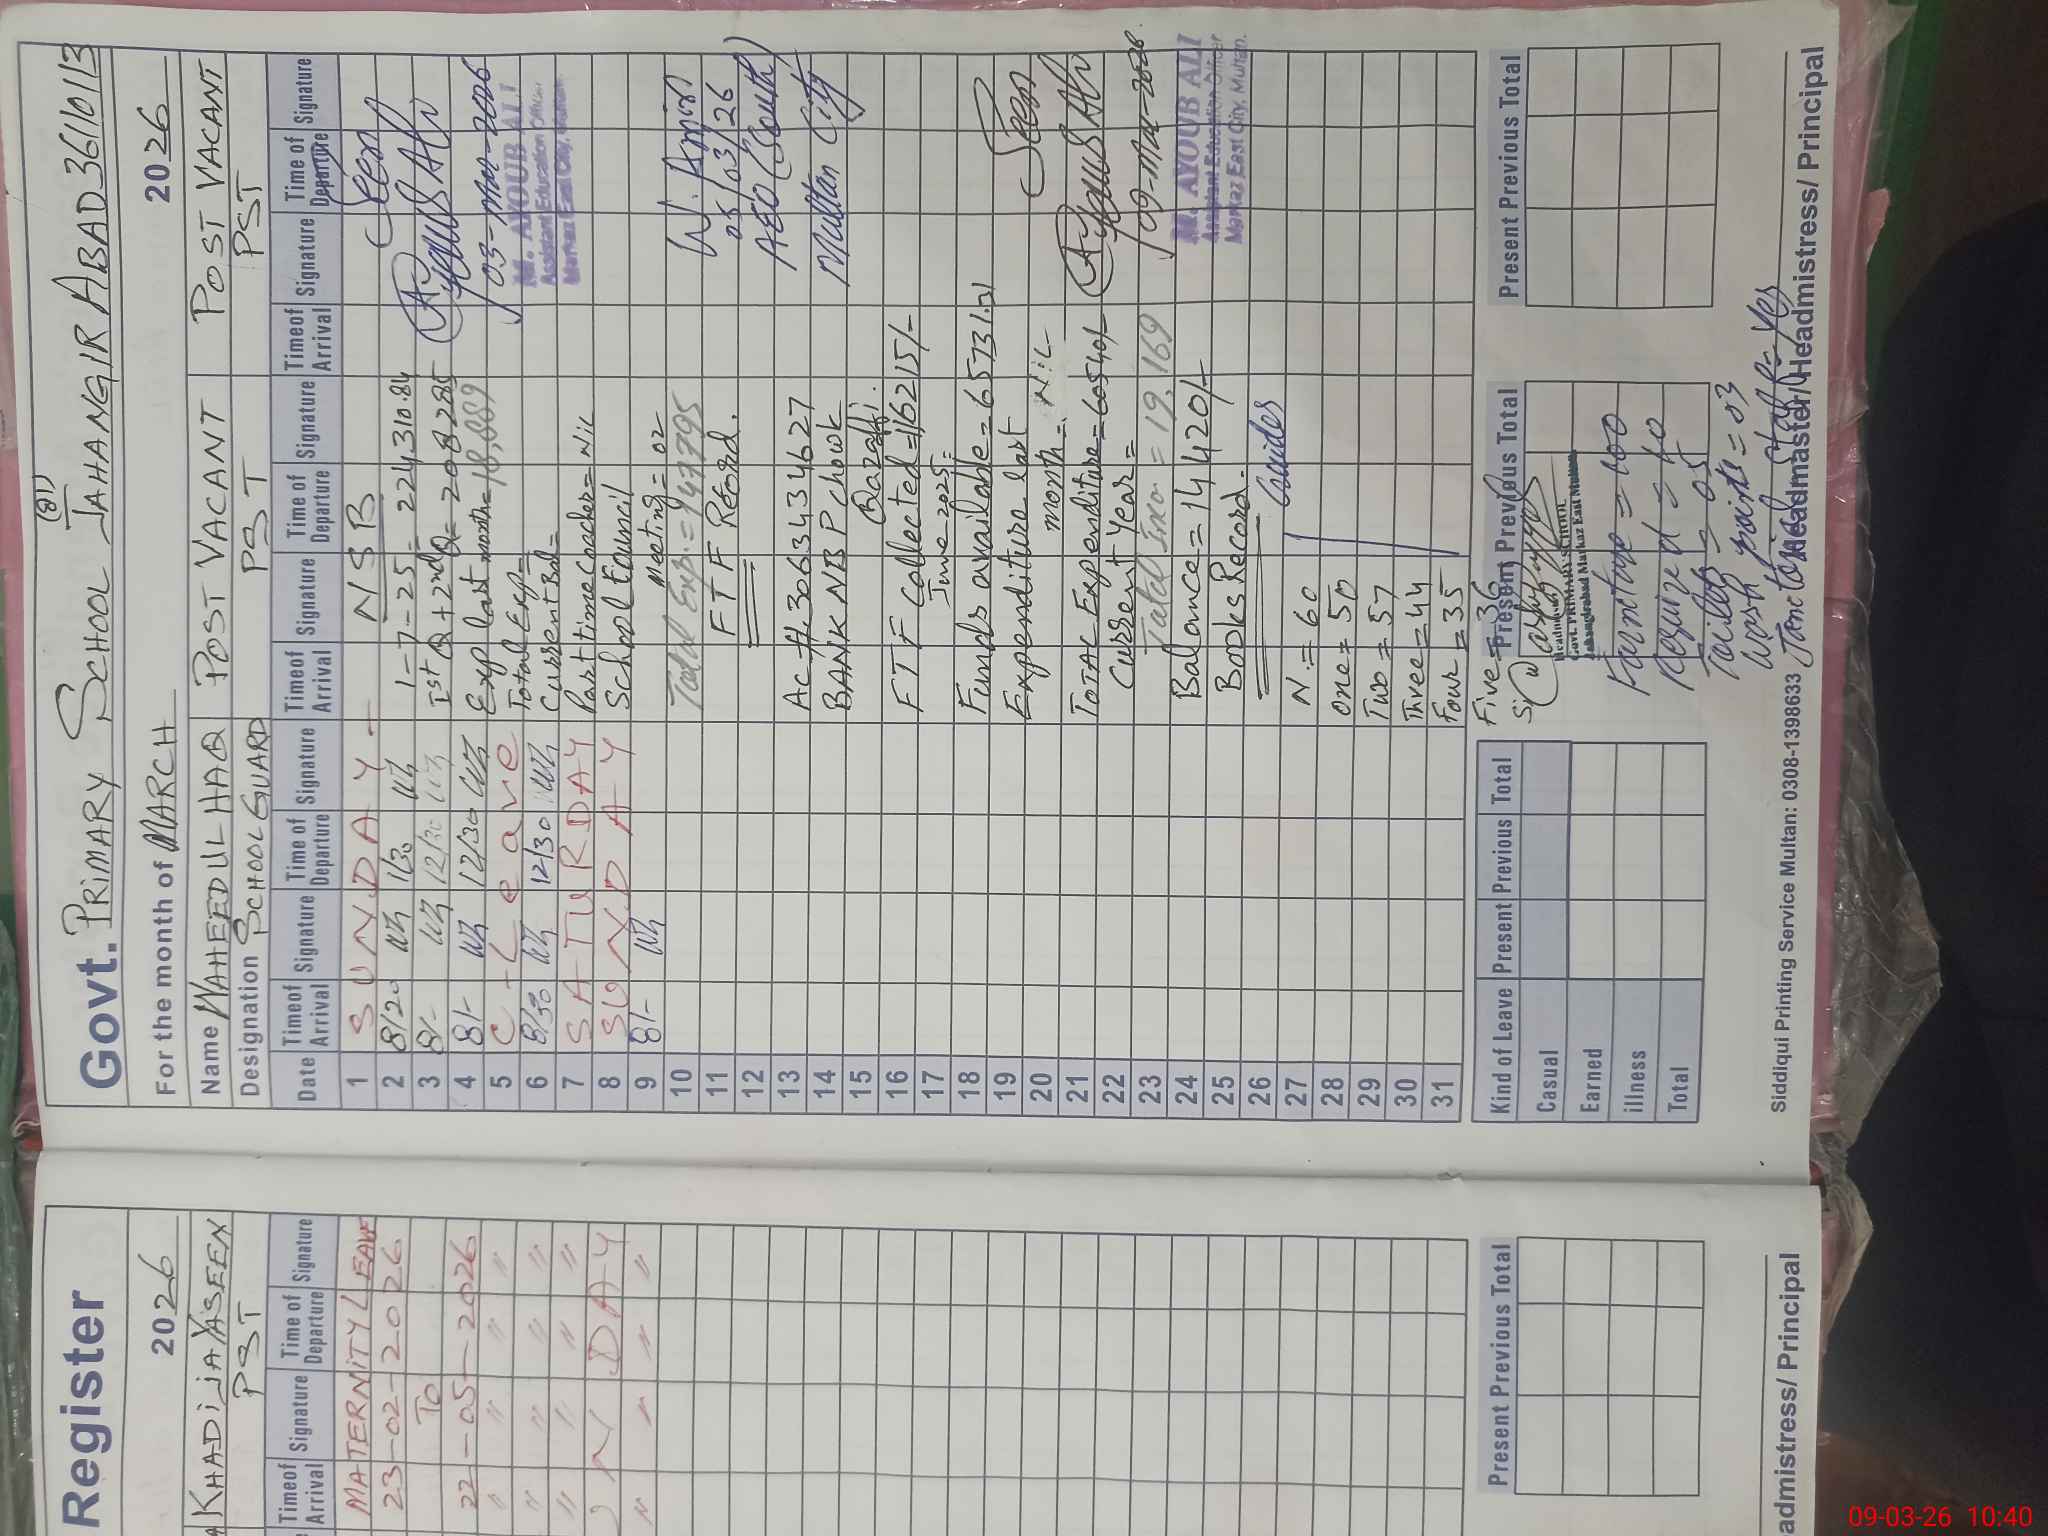 Govt. PRIMARY SCHOOL JAHANGIR ABAD 36110113
(81)
For the month of MARCH 2026
Name WAHEED UL HAQ POST VACANT POST VACANT POST VACANT
Designation SCHOOL GUARD PST PST
Date Timeof Arrival Signature Time of Departure Signature Timeof Arrival Signature Time of Departure Signature Timeof Arrival Signature Time of Departure Signature
1 SUNDAY NSB Seen
2 8/20 1/30 1-7-25 = 224,310.84
3 8/- 12/30 Ist Q + 2nd Q = 208285
4 8/- 12/30 Exp last month = 18,889 03-Mar-2026
5 C-Leave Total Exp = M. AYOUB ALI
6 8/30 12/30 Current Bal = Assistant Education Officer
7 SATURDAY Part time Coacher = Nil Markaz East City, Multan
8 SUNDAY School Council
9 8/- Meeting = 02
10 Total Exp. = 947795 W. Amin
11 FTF Record. 05/03/26
12 AEO (South)
13 Ac #. 3063434627 Multan City
14 BANK NBP chowk
15 Bazaffi.
16 FTF Collected = 116215/-
17 June 2025 =
18 Funds available = 65731.21
19 Expenditure last Seen
20 month = Nil
21 TOTAL Expenditure = 60540/-
22 Current Year = 09-Mar-2026
23 Total Inco = 19,169
24 Balance = 14420/- M. AYOUB ALI
25 Books Record. Assistant Education Officer
26 Markaz East City, Multan.
27 N. = 60
28 One = 50
29 Two = 57
30 Three = 44
31 Four = 35
Five = 36
Kind of Leave Present Previous Total Present Previous Total Present Previous Total
Casual
Earned
illness
Total
Headmaster
Govt. PRIMARY SCHOOL
Jahangirabad Markaz East Multan
Furniture = 100
Required = 40
Toilets = 05
Wash points = 03
Siddiqui Printing Service Multan: 0308-1398633 Headmaster/Headmistress/ Principal
Register
2026
KHADIJA YASEEN
PST
Timeof Arrival Signature Time of Departure Signature
MATERNITY LEAVE
23-02-2026
To
22-05-2026
" " " "
" " " "
" " " "
UNDAY
" " " "
Present Previous Total
admistress/ Principal
09-03-26 10:40